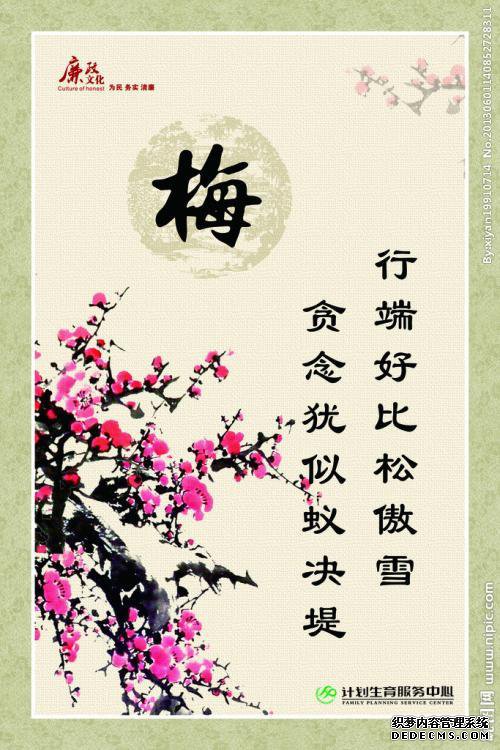 廉政
文化
Culture of honest
为民 务实 清廉
梅
行端好比松傲雪
贪念犹似蚁决堤
计划生育服务中心
FAMILY PLANNING SERVICE CENTER
织梦内容管理系统
DEDECMS.COM
By:xiyan19910714 No.20130601140852728311
www.nipic.com